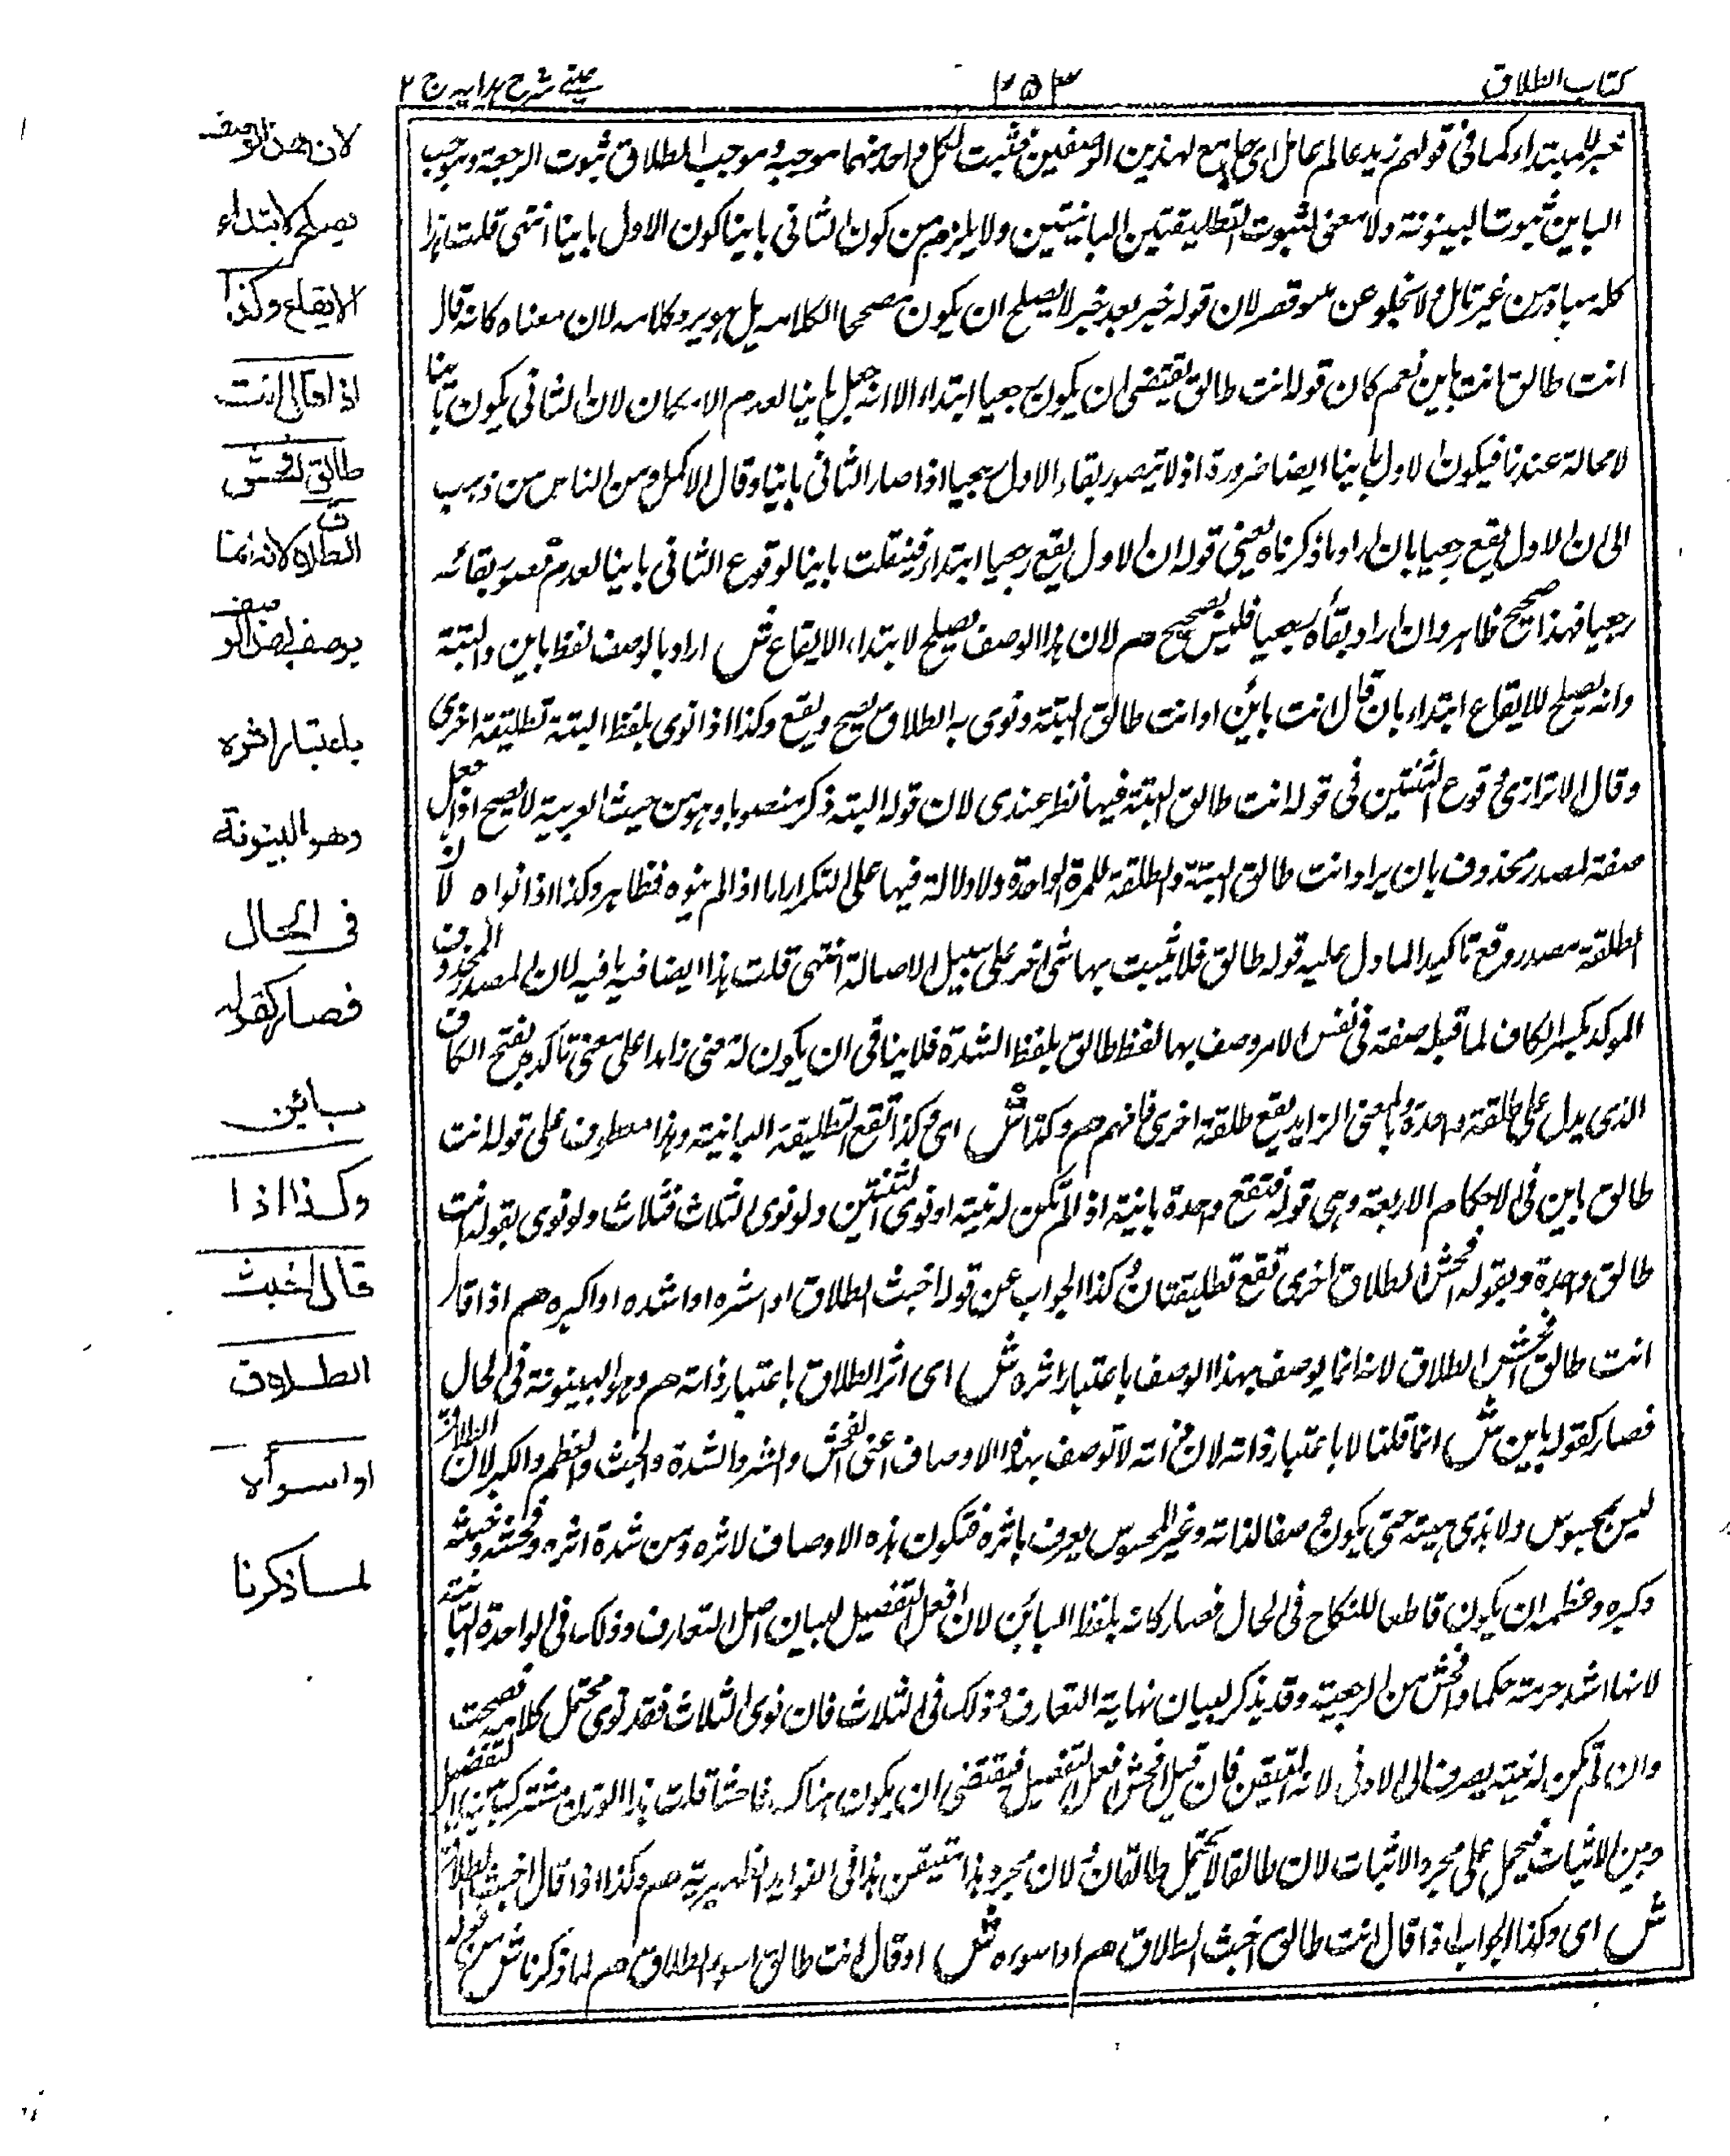 كتاب الطلاق
٢٥٣
عيني شرح هدايه ج ٢
خبر للمبتداء كما في قولهم زيد عالم عامل اي جامع لهذين الوصفين فثبت لكل واحد منهما موجبه وموجب الطلاق ثبوت الرجعة وموجب
الباين ثبوت البينونة ولا معنى لثبوت التطليقتين الباينتين ولا يلزم من كون الثاني باينا كون الاول باينا انتهى قلت هذا
كله صادر من غير تامل ولا يخلو عن قصر لان قوله خبر بعد خبر لا يصلح ان يكون مصححا الكلامه بل هو يرد كلامه لان معناه كانه قال
انت طالق انت باين نعم كان قوله انت طالق يقتضي ان يكون رجعيا ابتداء الا انه جعل باينا لعدم الامكان لان الثاني يكون باينا
لا محالة عندنا فيكون الاول باينا ايضا ضرورة اذ لا يتصور بقاء الاول رجعيا اذا صار الثاني باينا وقال الاكمل ومن الناس من ذهب
الى ان الاول يقع رجعيا بان اراد ما ذكرناه يعني قوله ان الاول يقع رجعيا ابتداء فينقلب باينا لوقوع الثاني باينا لعدم تصور بقائه
رجعيا فهذا صحيح ظاهر وان اراد بقاه رجعيا فليس بصحيح هم لان هذا الوصف يصلح لابتداء الايقاع ش اراد بالوصف لفظ باين والبتة
وانه يصلح للايقاع ابتداء بان قال انت بائن او انت طالق البتة ونوى به الطلاق يصح ويقع وكذا اذا نوى بلفظ البتة تطليقة اخرى
وقال الاترازي وقوع الثنتين في قوله انت طالق البتة فيها نظر عندي لان قوله البتة ذكر منصوبا وهو من حيث العربية لا يصح اذا جعل
صفة لمصدر محذوف بان يراد انت طالق البتة والطلقة للمرة الواحدة ولا دلالة فيها على التكرار اما اذا لم ينوه فظاهر وكذا اذا نواه لان
الطلقة مصدر وقع تاكيدا لما دل عليه قوله طالق فلا يثبت بها شئ اخر على سبيل الاصالة انتهى قلت هذا ايضا فيه ما فيه لان المصدر المحذوف
الموكد بكسر الكاف لما قبله صفة في نفس الامر وصف بها لفظ طالق بلفظ الشدة فلا ينافي ان يكون له معنى زايدا على معنى تأكده بفتح الكاف
الذي يدل على طلقة واحدة وبالمعنى الزايد يقع طلقة اخرى فافهم هم وكذا ش اي وكذا تقع التطليقة الباينة وهذا معطوف على قوله انت
طالق باين في الاحكام الاربعة وهي قوله فتقع واحدة باينة اذا لم تكن له نية او نوى الثنتين ولو نوى الثلاث فثلاث ولو نوى بقوله انت
طالق واحدة وبقوله افحش الطلاق اخرى تقع تطليقتان وكذا الجواب عن قوله اخبث الطلاق او اشره او اشده او اكبره هم اذا قال
انت طالق افحش الطلاق لانه انما يوصف بهذا الوصف باعتبار اثره ش اي اثر الطلاق باعتبار ذاته هم وهو البينونة في الحال
فصار كقوله باين ش انما قلنا لا باعتبار ذاته لان ذاته لا توصف بهذه الاوصاف اعني الفحش والشر والشدة والخبث والعظم والكبر لان الطلاق
ليس بمحسوس ولا بذي هيئة حتى يكون وصفا لذاته وغير المحسوس يعرف باثره فتكون هذه الاوصاف لاثره ومن شدة اثره وفحشه وخبثه
وكبره وعظمه ان يكون قاطعا للنكاح في الحال فصار كانه بلفظ البائن لان افعل التفضيل لبيان اصل التعارف وذلك في الواحدة الباينة
لانها اشد حرمة حكما وافحش من الرجعية وقد يذكر لبيان نهاية التعارف وذلك في الثلاث فان نوى الثلاث فقد نوى محتمل كلامه فصحت
وان لم تكن له نية يصرف الى الادنى لانه المتيقن فان قيل افحش افعل التفضيل فيقتضي ان يكون هناك فاحشا قلت هذا الوزن مشترك بين التفضيل
وبين الاثبات فيحمل على مجرد الاثبات لان طالقا لا يحتمل طالقان لان مجرد هذا متيقن هذا في الفوايد الظهيرية هم وكذا اذا قال اخبث الطلاق
ش اي وكذا الجواب اذا قال انت طالق اخبث الطلاق هم او اسوءه ش او قال انت طالق اسوء الطلاق هم لما ذكرنا ش من قوله
لان هذا الوصف
يصلح لابتداء
الايقاع وكذا
اذا قال انت
طالق افحش
الطلاق لانه انما
يوصف بهذا الوصف
باعتبار اثره
وهو البينونة
في الحال
فصار كقوله
بائن
وكذا اذا
قال اخبث
الطلاق
او اسوأه
لما ذكرنا